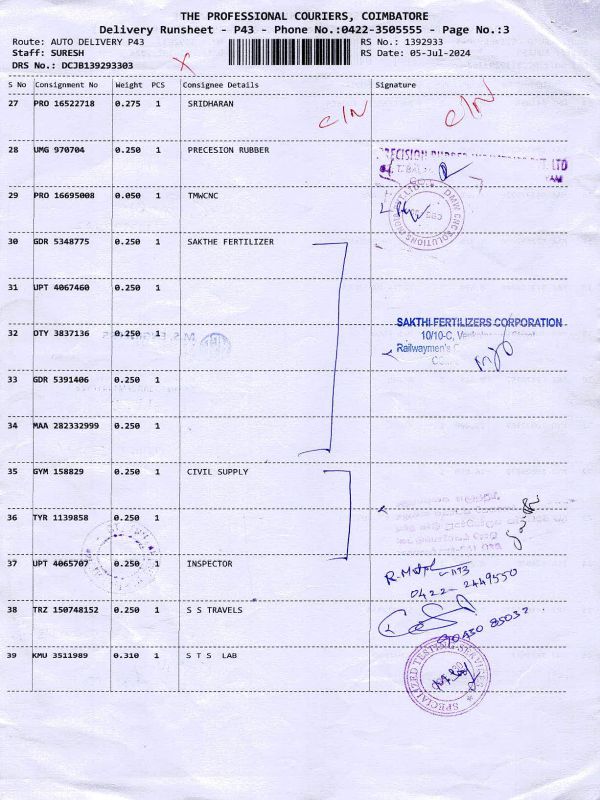 THE PROFESSIONAL COURIERS, COIMBATORE
Delivery Runsheet - P43 - Phone No.:0422-3505555 - Page No.:3
Route: AUTO DELIVERY P43 RS No.: 1392933
Staff: SURESH RS Date: 05-Jul-2024
DRS No.: DCJB139293303
S No Consignment No Weight PCS Consignee Details Signature
27 PRO 16522718 0.275 1 SRIDHARAN
28 UMG 970704 0.250 1 PRECESION RUBBER
29 PRO 16695008 0.050 1 TMWCNC
DMW CNC SOLUTIONS INDIA
30 GDR 5348775 0.250 1 SAKTHE FERTILIZER
31 UPT 4067460 0.250 1
SAKTHI FERTILIZERS CORPORATION
32 DTY 3837136 0.250 1 10/10-C,
Railwaymen's
33 GDR 5391406 0.250 1
34 MAA 282332999 0.250 1
35 GYM 158829 0.250 1 CIVIL SUPPLY
36 TYR 1139858 0.250 1
37 UPT 4065707 0.250 1 INSPECTOR
0422-2449550
38 TRZ 150748152 0.250 1 S S TRAVELS
90430 85032
39 KMU 3511989 0.310 1 S T S LAB
SPECIALIZED TESTING SERVICES